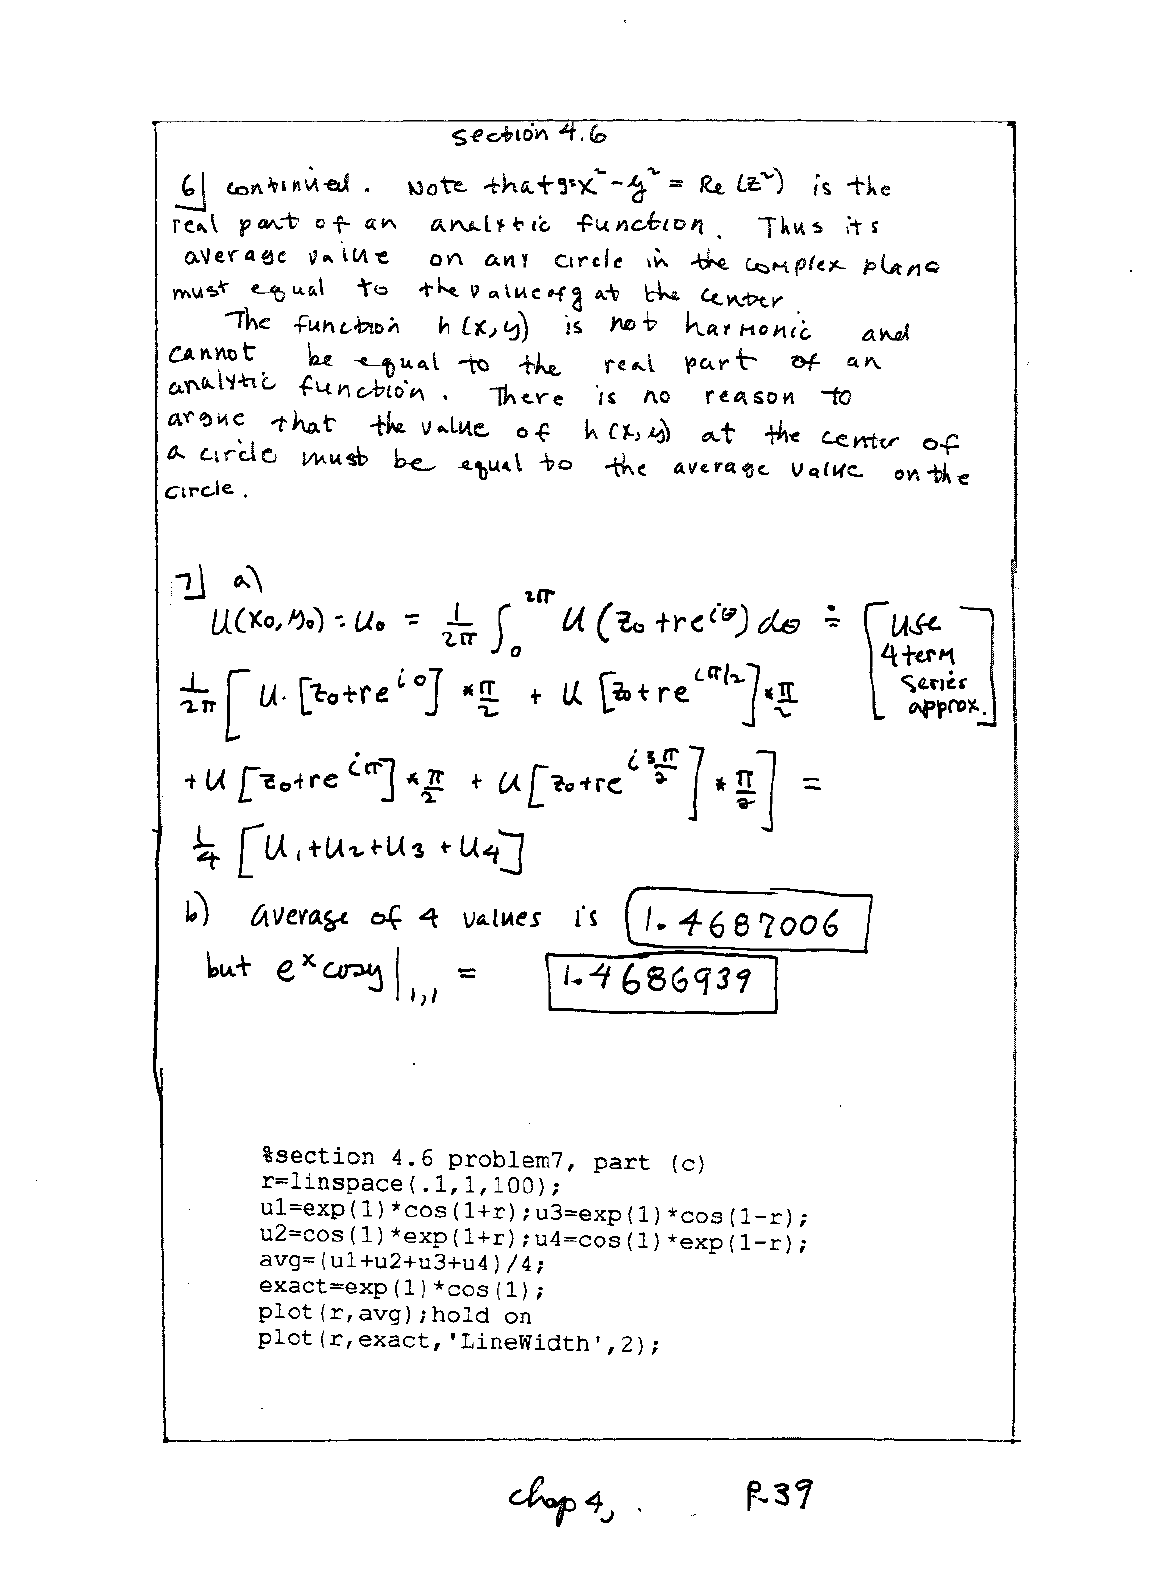 section 4.6
6] continued. Note that g=x²-y² = Re(z²) is the
real part of an analytic function. Thus its
average value on any circle in the complex plane
must equal to the value of g at the center
The function h(x,y) is not harmonic and
cannot be equal to the real part of an
analytic function. There is no reason to
argue that the value of h(x,y) at the center of
a circle must be equal to the average value on the
circle.
7] a)
U(x₀,y₀) = U₀ = 1/2π ∫₀^2π U(z₀+re^iθ)dθ ≐ [use 4 term series approx.]
1/2π [U.[z₀+re^i0] *π/2 + U[z₀+re^iπ/2]*π/2
+U[z₀+re^iπ]*π/2 + U[z₀+re^i3π/2]*π/2] =
1/4 [U₁+U₂+U₃+U₄]
b) average of 4 values is 1.4687006
but e^x cosy|₁,₁ = 1.4686939
%section 4.6 problem7, part (c)
r=linspace(.1,1,100);
u1=exp(1)*cos(1+r);u3=exp(1)*cos(1-r);
u2=cos(1)*exp(1+r);u4=cos(1)*exp(1-r);
avg=(u1+u2+u3+u4)/4;
exact=exp(1)*cos(1);
plot(r,avg);hold on
plot(r,exact,'LineWidth',2);
chap 4, P.39